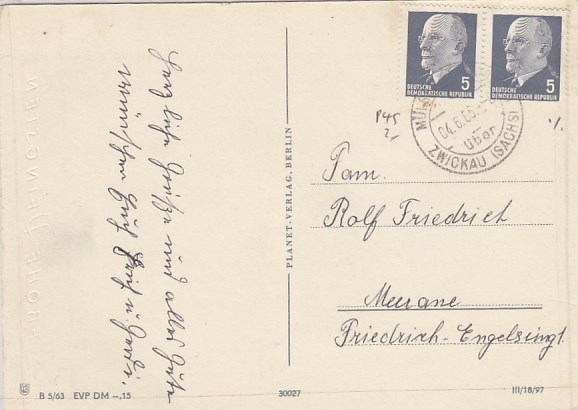 FROHE PFINGSTEN
Herzliche Grüße und alles Gute
wünschen Euch
PLANET-VERLAG, BERLIN
5
DEUTSCHE
DEMOKRATISCHE REPUBLIK
5
DEUTSCHE
DEMOKRATISCHE REPUBLIK
04.6.65
über
ZWICKAU (SACHS)
P45
2,-
Fam.
Rolf Friedrich
Meerane
Friedrich-Engelsingt.
B 5/63 EVP DM –,15
30027
III/18/97